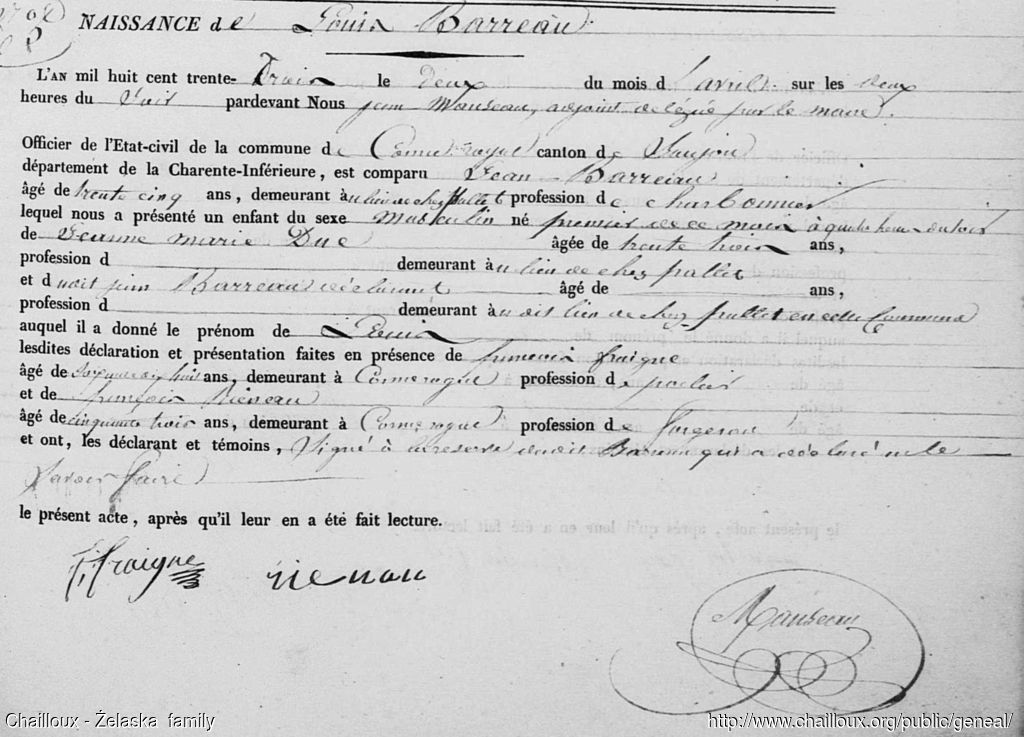 NAISSANCE de Louis Barreau
L'AN mil huit cent trente-Trois le deux du mois d'avril sur les deux
heures du Soir pardevant Nous jean Manseau, adjoint delégué par le maire
Officier de l'Etat-civil de la commune de Corme royal canton de Saujon
département de la Charente-Inférieure, est comparu Jean Barreau
âgé de trente cinq ans, demeurant au lieu de chez pallet profession de charbonnier
lequel nous a présenté un enfant du sexe Masculin né premier de ce mois à quatre heures du soir
de Jeanne marie Duc âgée de trente trois ans,
profession d demeurant au lieu de chez pallet
et dudit jean Barreau déclarant âgé de ans,
profession d demeurant audit lieu de chez pallet en cette Commune
auquel il a donné le prénom de Louis
lesdites déclaration et présentation faites en présence de fraigne
âgé de ans, demeurant à Corme royal profession de
et de françois
âgé de cinquante trois ans, demeurant à Corme royal profession de forgeron
et ont, les déclarant et témoins, Signé à la reserve dudit Barreau qui a déclaré ne le
Savoir faire
le présent acte, après qu'il leur en a été fait lecture.
fraigne
Manseau
Chailloux - Želaska family http://www.chailloux.org/public/geneal/